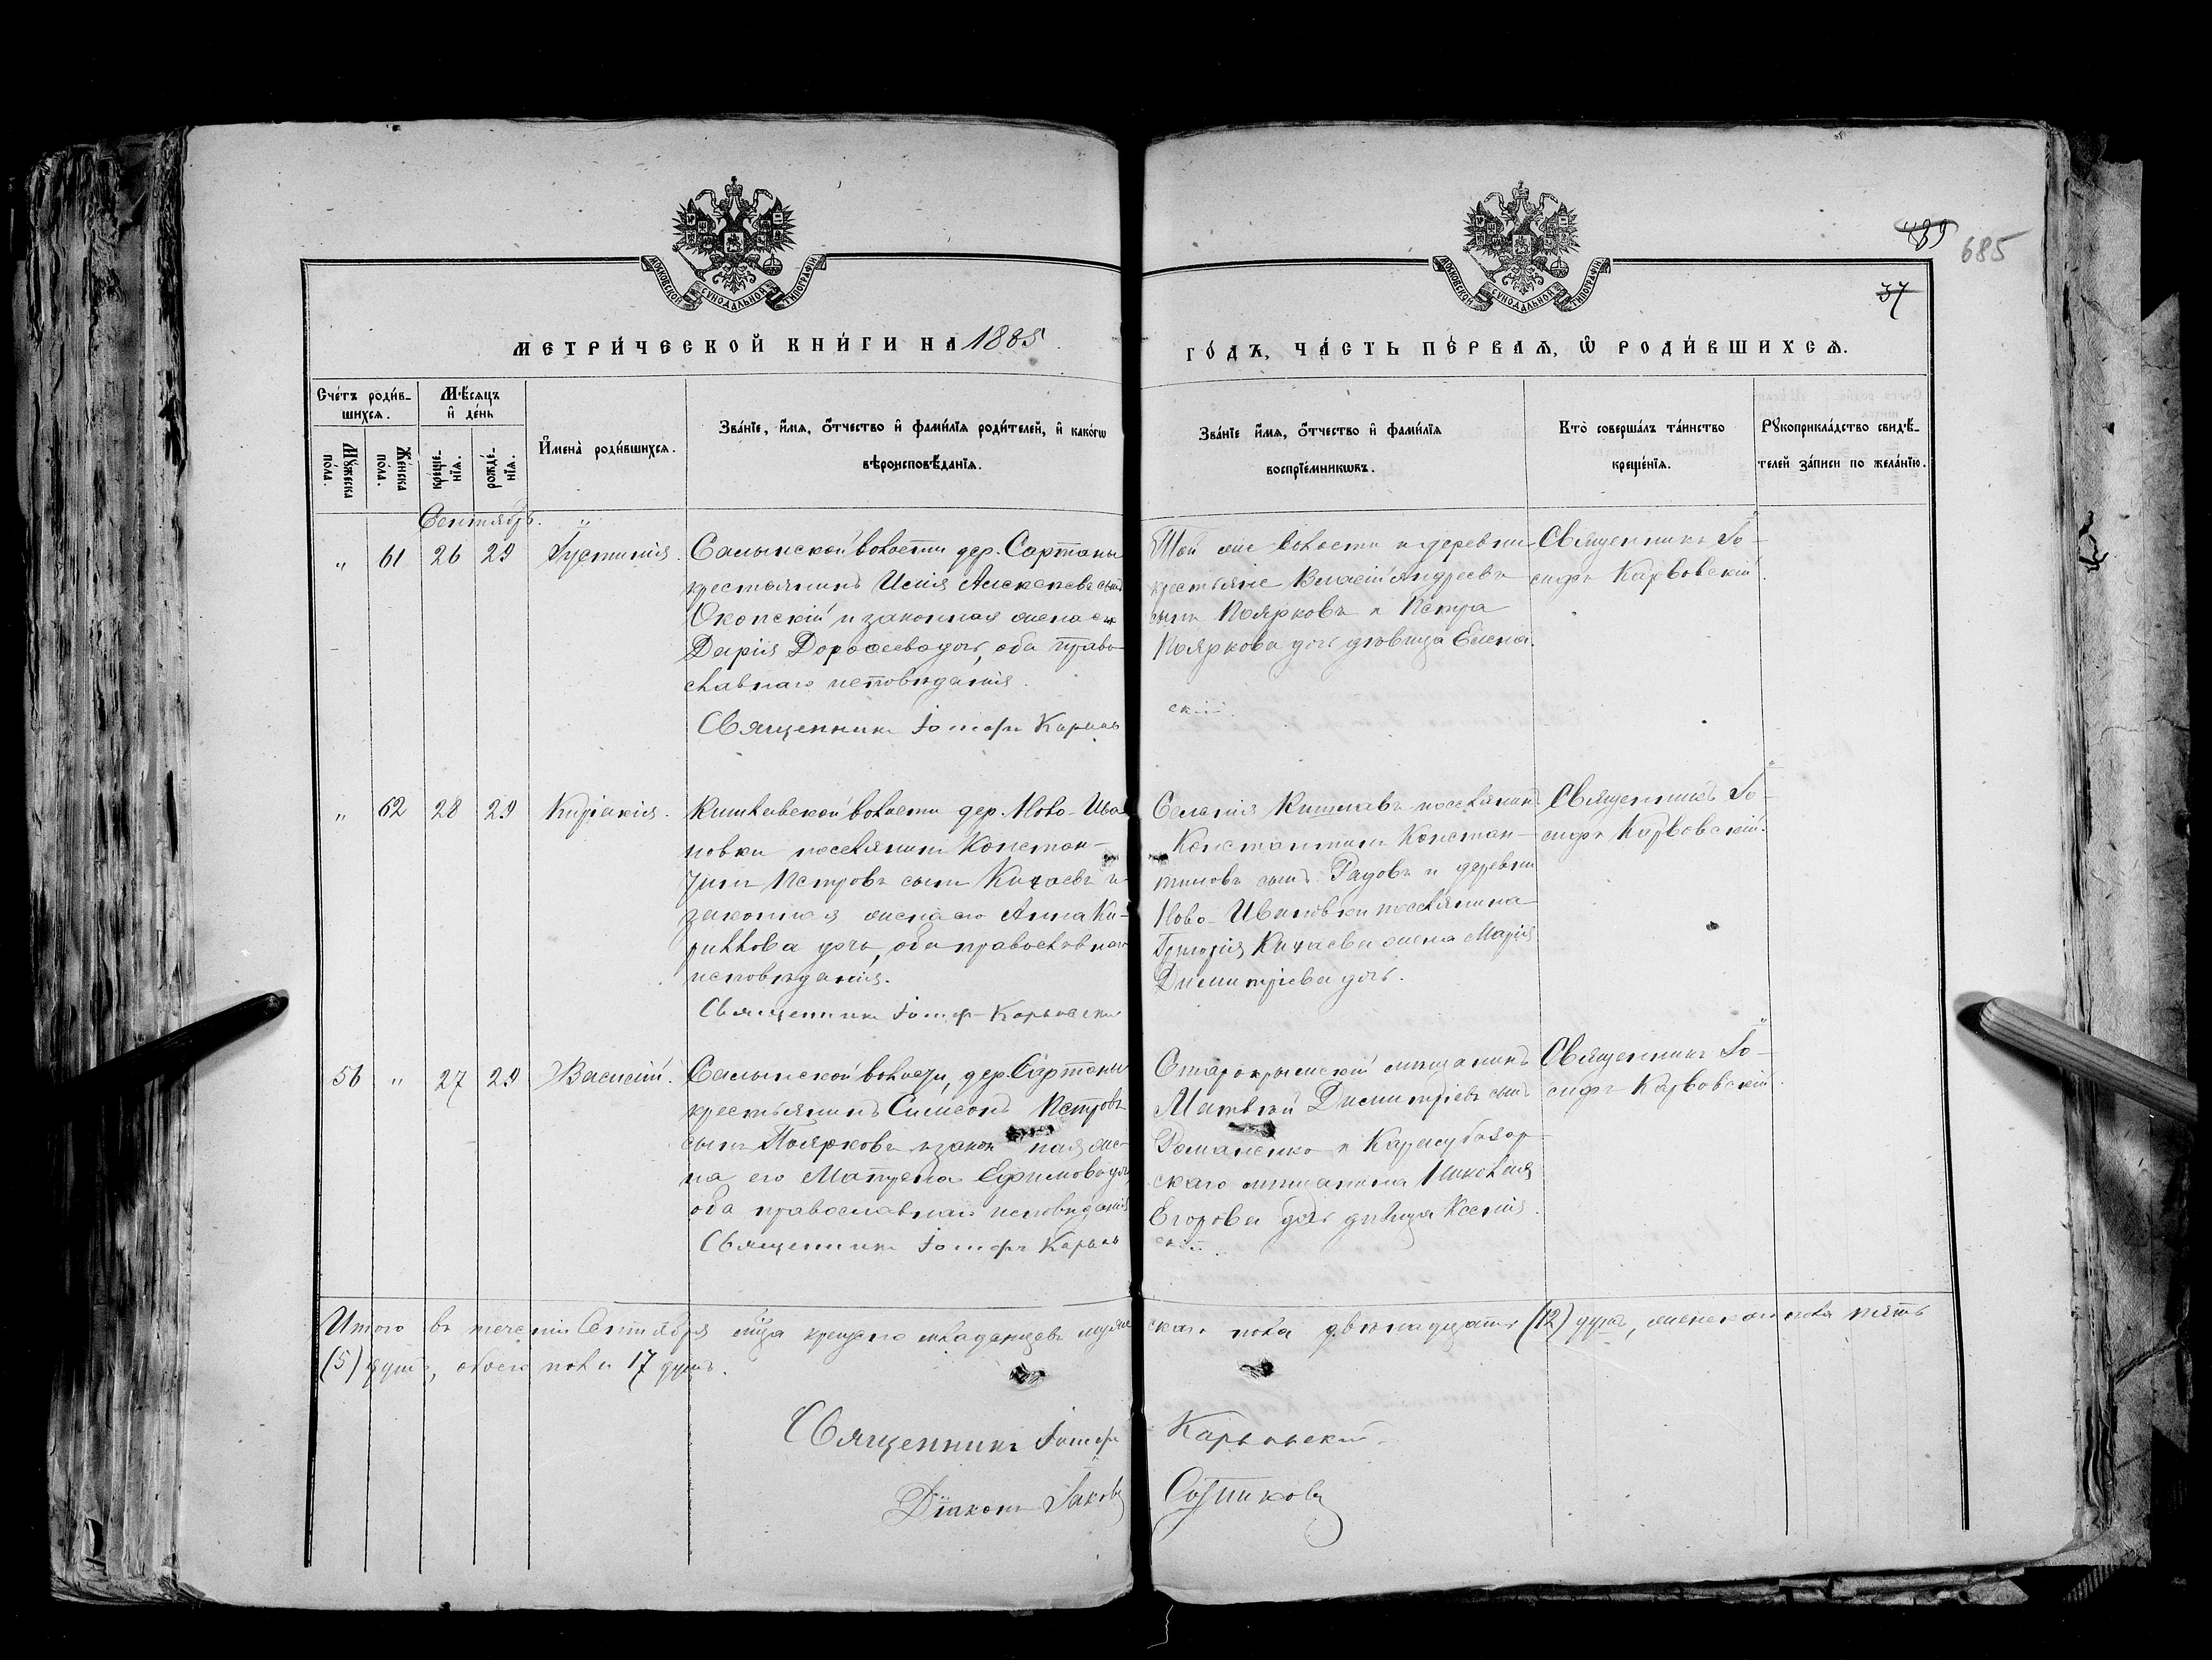 489
685
37
МОСКОВСКОЙ СУНОДАЛЬНОЙ ТИПОГРАФІИ
МОСКОВСКОЙ СУНОДАЛЬНОЙ ТИПОГРАФІИ
МЕТРИ́ЧЕСКОЙ КНИ́ГИ НА 1885
ГО́ДЪ, ЧА́СТЬ ПЕ́РВАѦ, Ѡ҆ РОДИ́ВШИХСѦ.
Сче́тъ роди́в-
шихсѧ.
Мꙋ́жеска по́ла.
Же́нска по́ла.
Мѣ́сѧцъ
и҆ де́нь
креще́-
нїѧ.
рожде́-
нїѧ.
И҆мена̀ роди́вшихсѧ.
Зва́нїе, и҆́мѧ, о҆́тчество и҆ фами́лїѧ роди́телей, и҆ како́гѡ
вѣроисповѣ́данїѧ.
Зва́нїе и҆́мѧ, о҆́тчество и҆ фами́лїѧ
воспрїе́мникѡвъ.
Кто̀ соверша́лъ та́инство
креще́нїѧ.
Рꙋкоприкла́дство свидѣ́-
телей за́писи по жела́нїю.
Сентябрь.
" 61 26 29 Іустинія.
Салынской волости дер. Сартаны
крестьянинъ Илія Алексѣевъ сынъ
Окопскій и законная жена его
Дарія Дороѳеева дочь, оба право-
славнаго исповѣданія.
Священникъ Іосифъ Карвов
Той же волости и деревни
крестьяне Власій Андреевъ
сынъ Поярковъ и Петра
Пояркова дочь дѣвица Елена.
скій.
Священникъ Іо-
сифъ Карвовскій.
" 62 28 29 Киріакія.
Кишлавской волости дер. Ново-Ива
новки поселянинъ Констан-
тинъ Петровъ сынъ Кичаевъ и
законная жена его Анна Ки-
риллова дочь, оба православнаго
исповѣданія.
Священникъ Іосифъ Карвовскій
Селенія Кишлавъ поселянинъ
Константинъ Констан-
тиновъ сынъ Радовъ и деревни
Ново-Ивановки поселянина
Григорія Кичаева жена Марія
Димитріева дочь.
Священникъ Іо-
сифъ Карвовскій.
56 " 27 29 Василій.
Салынской волости, дер. Сартаны
крестьянинъ Симеонъ Петровъ
сынъ Поярковъ и законная же-
на его Матрена Ефимова дочь
оба православнаго исповѣданія
Священникъ Іосифъ Карвов
Старокрымскій мѣщанинъ
Матвѣй Димитріевъ сынъ
Романенко и Карасубазар-
скаго мѣщанина Николая
Егорова дочь дѣвица Ксенія.
скій.
Священникъ Іо-
сифъ Карвовскій.
Итого въ теченіи Сентября м-ца крещено младенцевъ муже скаго пола двѣнадцать (12) душъ, женскаго пола пять
(5) душъ, обоего пола 17 душъ.
Священникъ Іосифъ Карвовскій.
Діаконъ Іаковъ Сотниковъ